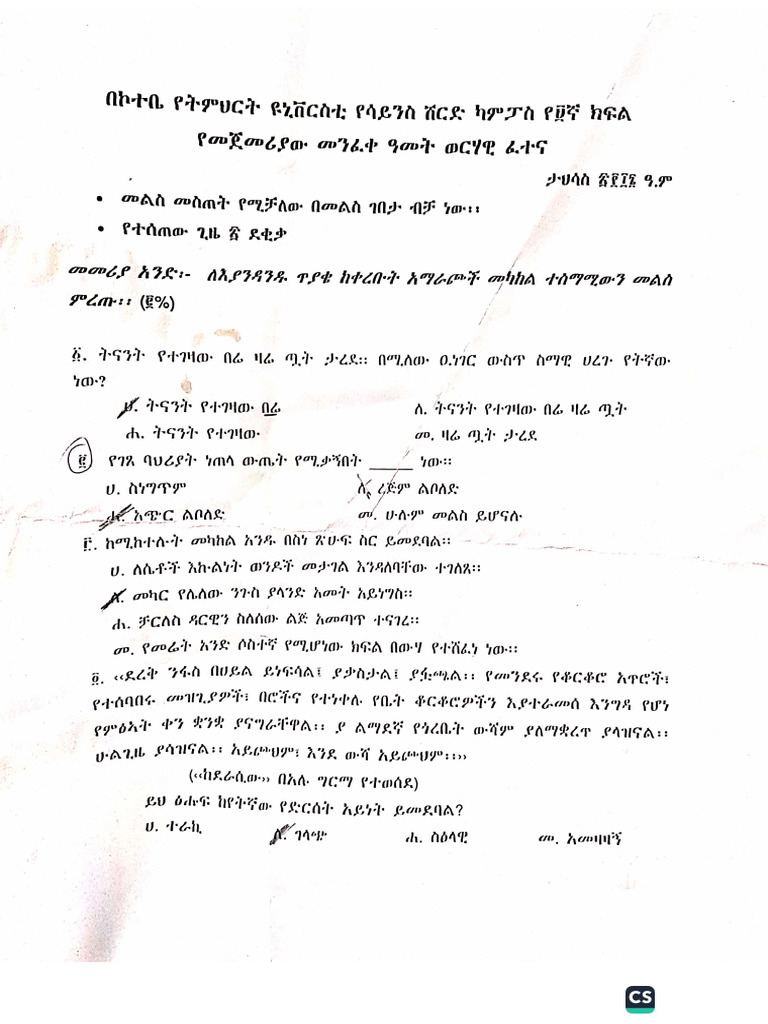 በኮተቤ የትምህርት ዩኒቨርስቲ የሳይንስ ሸርድ ካምፓስ የ፱ኛ ክፍል
የመጀመሪያው መንፈቀ ዓመት ወርሃዊ ፈተና
ታህሳስ ዓ.ም
• መልስ መስጠት የሚቻለው በመልስ ገበታ ብቻ ነው።
• የተሰጠው ጊዜ ደቂቃ
መመሪያ አንድ፡- ለእያንዳንዱ ጥያቄ ከቀረቡት አማራጮች መካከል ተስማሚውን መልስ
ምረጡ። (%)
፩. ትናንት የተገዛው በሬ ዛሬ ጧት ታረደ። በሚለው ዐ.ነገር ውስጥ ስማዊ ሀረጉ የትኛው
ነው?
ሀ. ትናንት የተገዛው በሬ ለ. ትናንት የተገዛው በሬ ዛሬ ጧት
ሐ. ትናንት የተገዛው መ. ዛሬ ጧት ታረደ
፪ የገጸ ባህሪያት ነጠላ ውጤት የሚቃኝበት ______ ነው።
ሀ. ስነግጥም ለ. ረጅም ልቦለድ
ሐ. አጭር ልቦለድ መ. ሁሉም መልስ ይሆናሉ
፫. ከሚከተሉት መካከል አንዱ በስነ ጽሁፍ ስር ይመደባል።
ሀ. ለሴቶች እኩልነት ወንዶች መታገል እንዳለባቸው ተገለጸ።
ለ. መካር የሌለው ንጉስ ያላንድ አመት አይነግስ።
ሐ. ቻርለስ ዳርዊን ስለሰው ልጅ አመጣጥ ተናገረ።
መ. የመሬት አንድ ሶስተኛ የሚሆነው ክፍል በውሃ የተሸፈነ ነው።
፬. ‹‹ደረቅ ንፋስ በሀይል ይነፍሳል፤ ያቃስታል፤ ያፏጫል። የመንደሩ የቆርቆሮ አጥሮች፣
የተሰባበሩ መዝጊያዎች፣ በሮችና የተነቀሉ የቤት ቆርቆሮዎችን እያተራመሰ እንግዳ የሆነ
የምፅአት ቀን ቋንቋ ያናግራቸዋል። ያ ልማደኛ የጎረቤት ውሻም ያለማቋረጥ ያላዝናል።
ሁልጊዜ ያሳዝናል። አይጮህም፣ እንደ ውሻ አይጮህም።››
(‹‹ከደራሲው›› በአሉ ግርማ የተወሰደ)
ይህ ፅሑፍ ከየትኛው የድርሰት አይነት ይመደባል?
ሀ. ተራኪ ለ. ገላጭ ሐ. ስዕላዊ መ. አመዛዛኝ
CS